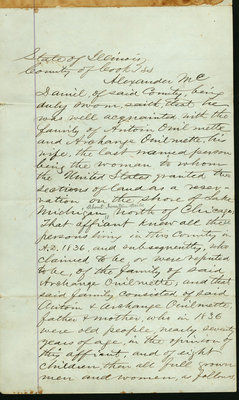 State of Illinois
County of Cook } ss
Alexander Mc
Daniel, of said County, being
duly sworn, saith, that he
was well acquainted with the
family of Antoin Ouilmette
and Archange Ouilmette, his
wife, the last named person
being the woman to whom
the United States granted two
sections of land as a reser-
vation on the shore of Lake
Michigan, North of Chicago;
That affiant knew all the
persons living in this County in
A.D. 1836, and subsequently, who
claimed to be, or were reputed
to be, of the family of said
Archange Ouilmette; and that
said family consisted of said
Antoin & Archange Ouilmette,
father & mother, who in 1836
were old people, nearly seventy
years of age, in the opinion of
this affiant, and of eight
children, then all full grown
men and women, as follows,